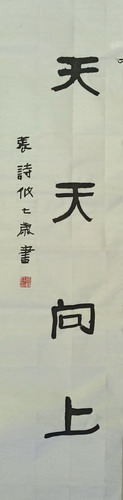 天天向上
裴詩攸七歲書